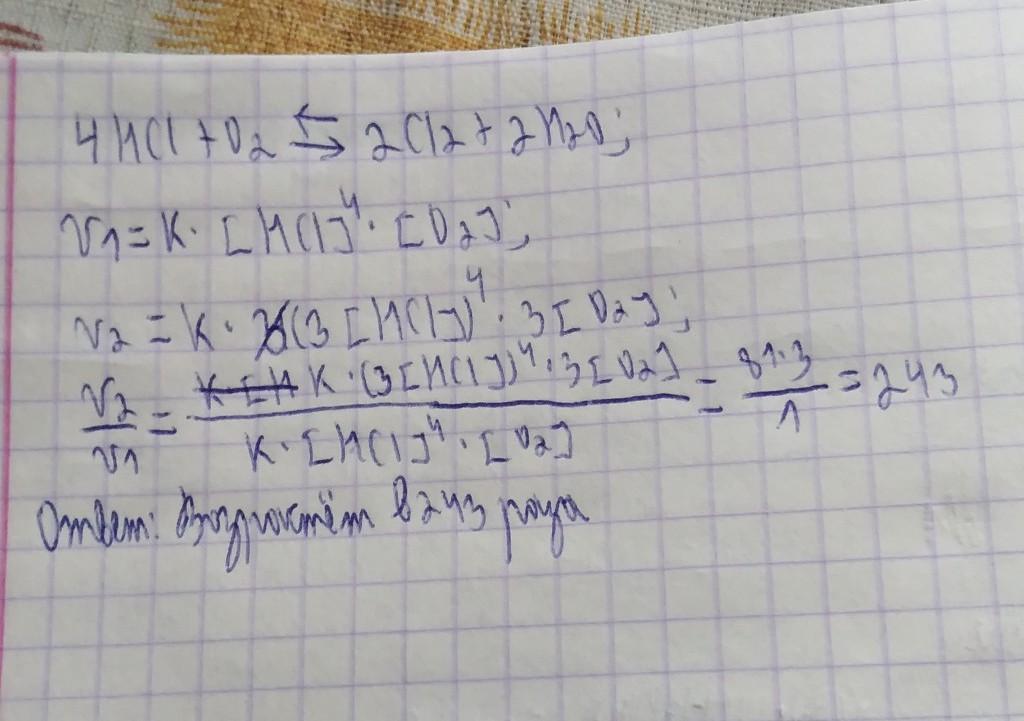 4HCl + O2 ⇆ 2Cl2 + 2H2O;
V1 = K · [HCl]^4 · [O2];
V2 = K · (3[HCl])^4 · 3[O2];
V2/V1 = K · (3[HCl])^4 · 3[O2] / K · [HCl]^4 · [O2] = 81·3/1 = 243
Ответ: Возрастёт в 243 раза